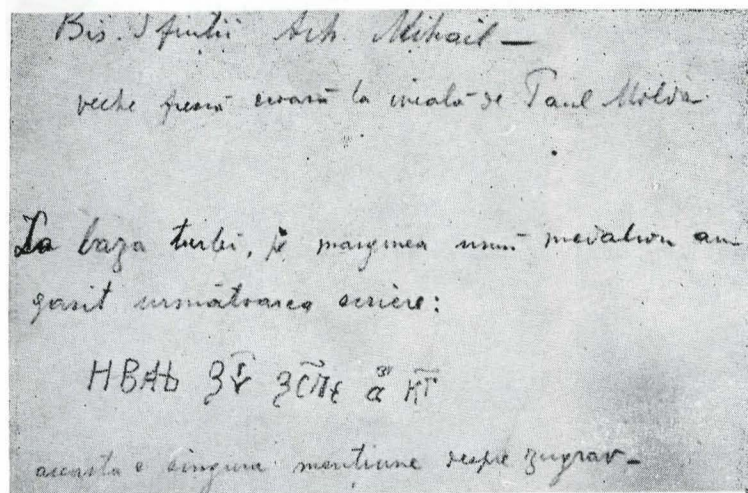 Bis. Sfinții Arh. Mihail –
veche frescă scoasă la iveală de Paul Molda
La baza turlei, pe marginea unui medalion am
gasit următoarea scriere:
НВАЬ
aceasta e singura mențiune despre zugrav –